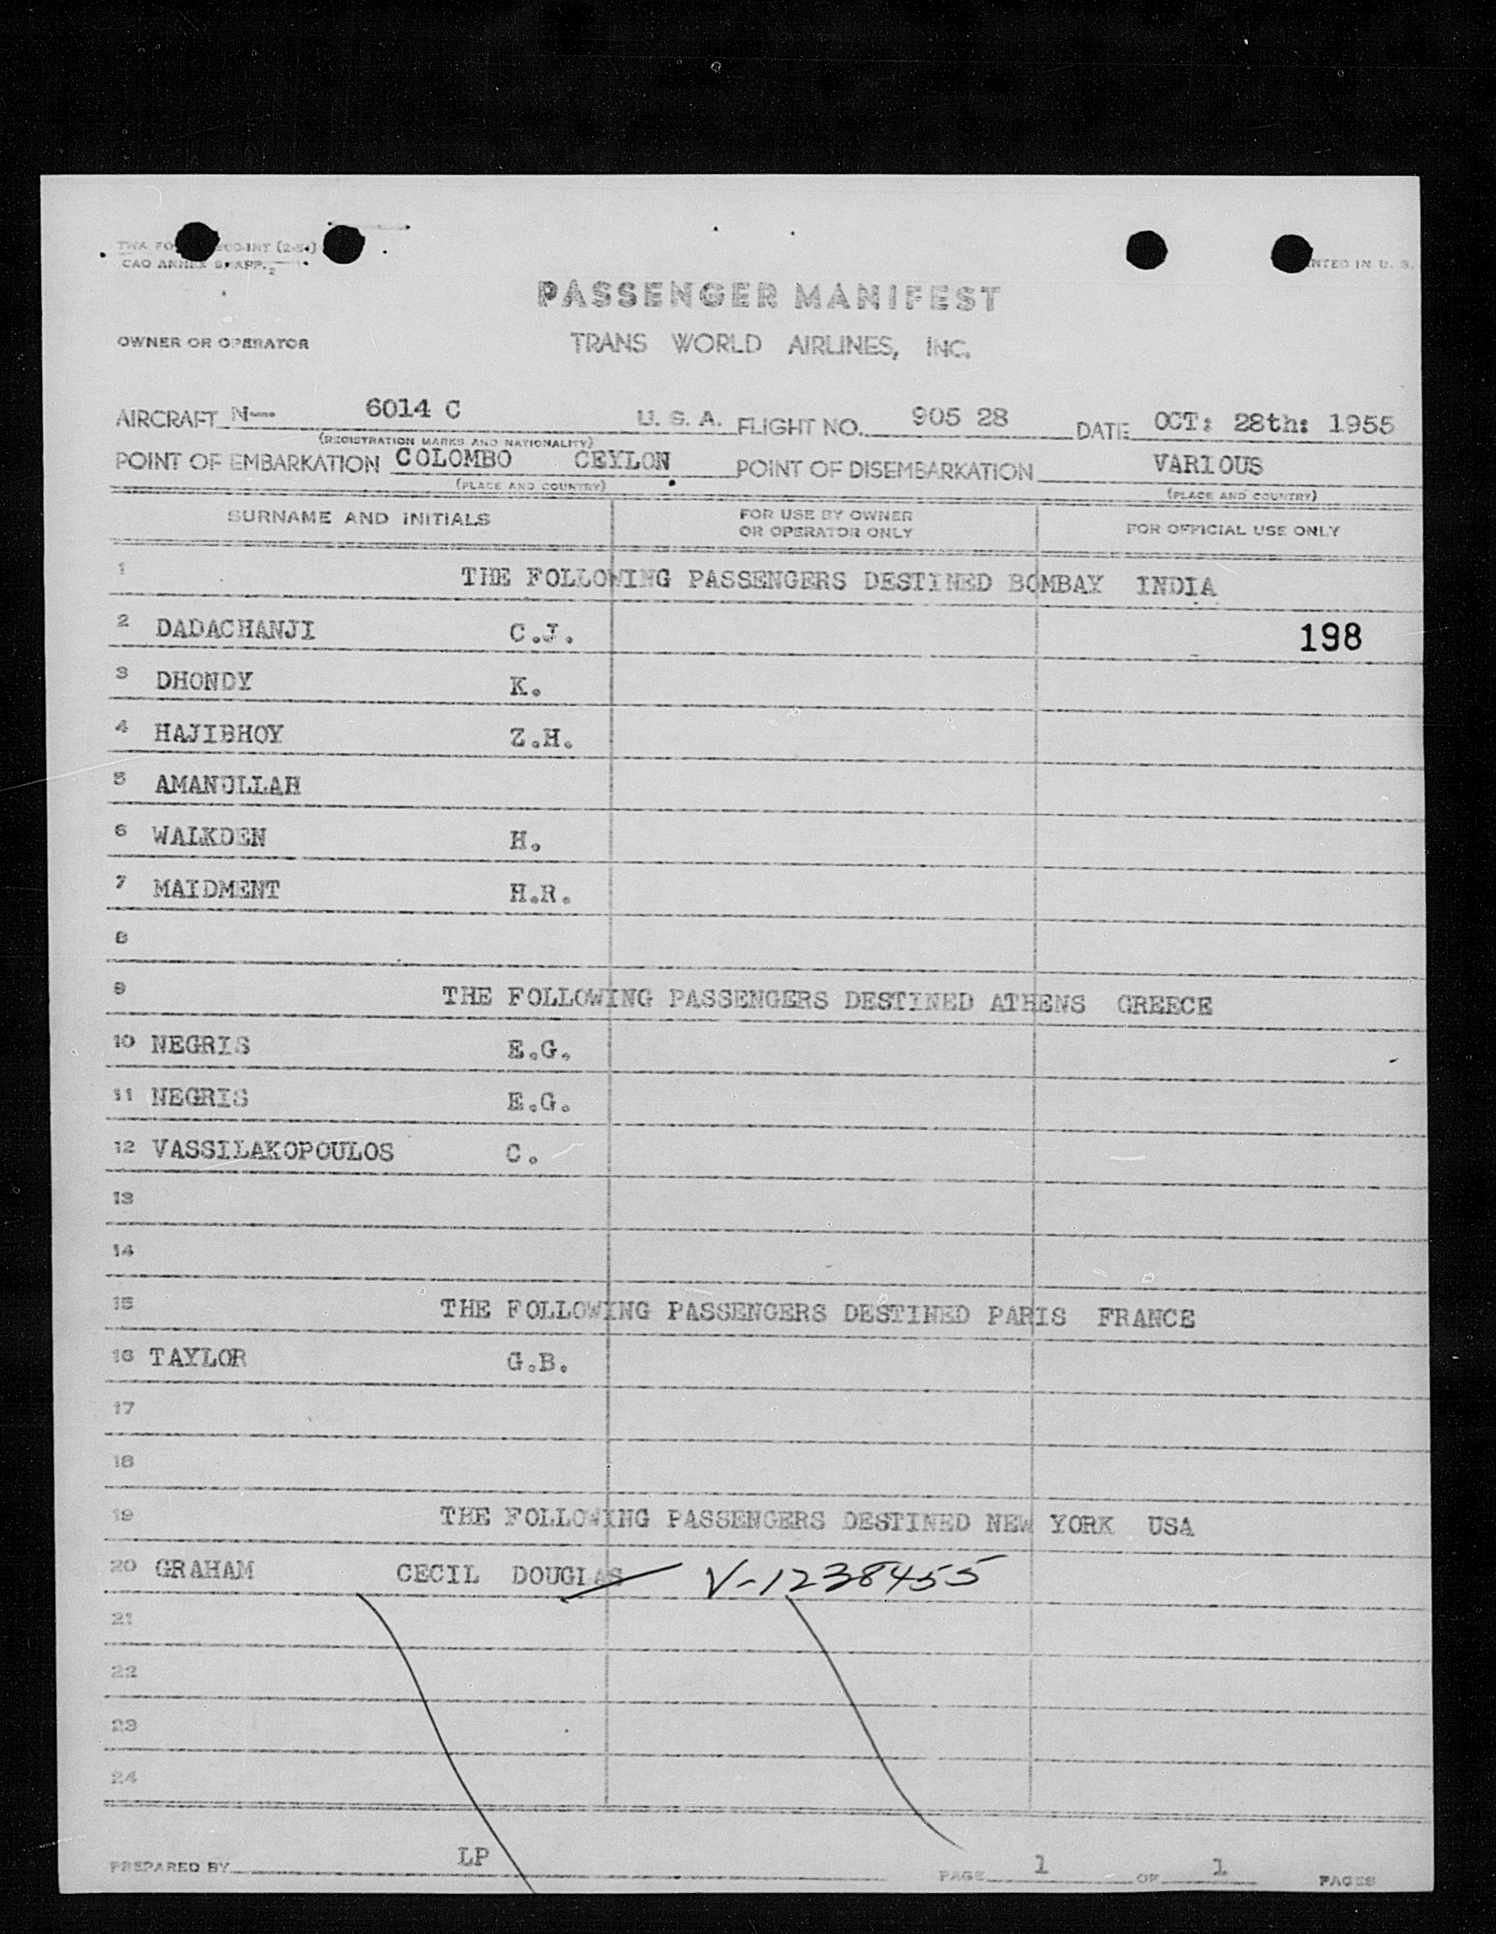 PASSENGER MANIFEST
OWNER OR OPERATOR TRANS WORLD AIRLINES, INC.
AIRCRAFT N--- 6014 C U. S. A. FLIGHT NO. 905 28 DATE OCT: 28th: 1955
(REGISTRATION MARKS AND NATIONALITY)
POINT OF EMBARKATION COLOMBO CEYLON POINT OF DISEMBARKATION VARIOUS
(PLACE AND COUNTRY) (PLACE AND COUNTRY)
SURNAME AND INITIALS FOR USE BY OWNER OR OPERATOR ONLY FOR OFFICIAL USE ONLY
1 THE FOLLOWING PASSENGERS DESTINED BOMBAY INDIA
2 DADACHANJI C.J. 198
3 DHONDY K.
4 HAJIBHOY Z.H.
5 AMANULLAH
6 WALKDEN H.
7 MAIDMENT H.R.
8
9 THE FOLLOWING PASSENGERS DESTINED ATHENS GREECE
10 NEGRIS E.G.
11 NEGRIS E.G.
12 VASSILAKOPOULOS C.
13
14
15 THE FOLLOWING PASSENGERS DESTINED PARIS FRANCE
16 TAYLOR G.B.
17
18
19 THE FOLLOWING PASSENGERS DESTINED NEW YORK USA
20 GRAHAM CECIL DOUGLAS V-1238455
21
22
23
24
PREPARED BY LP PAGE 1 OF 1 PAGES